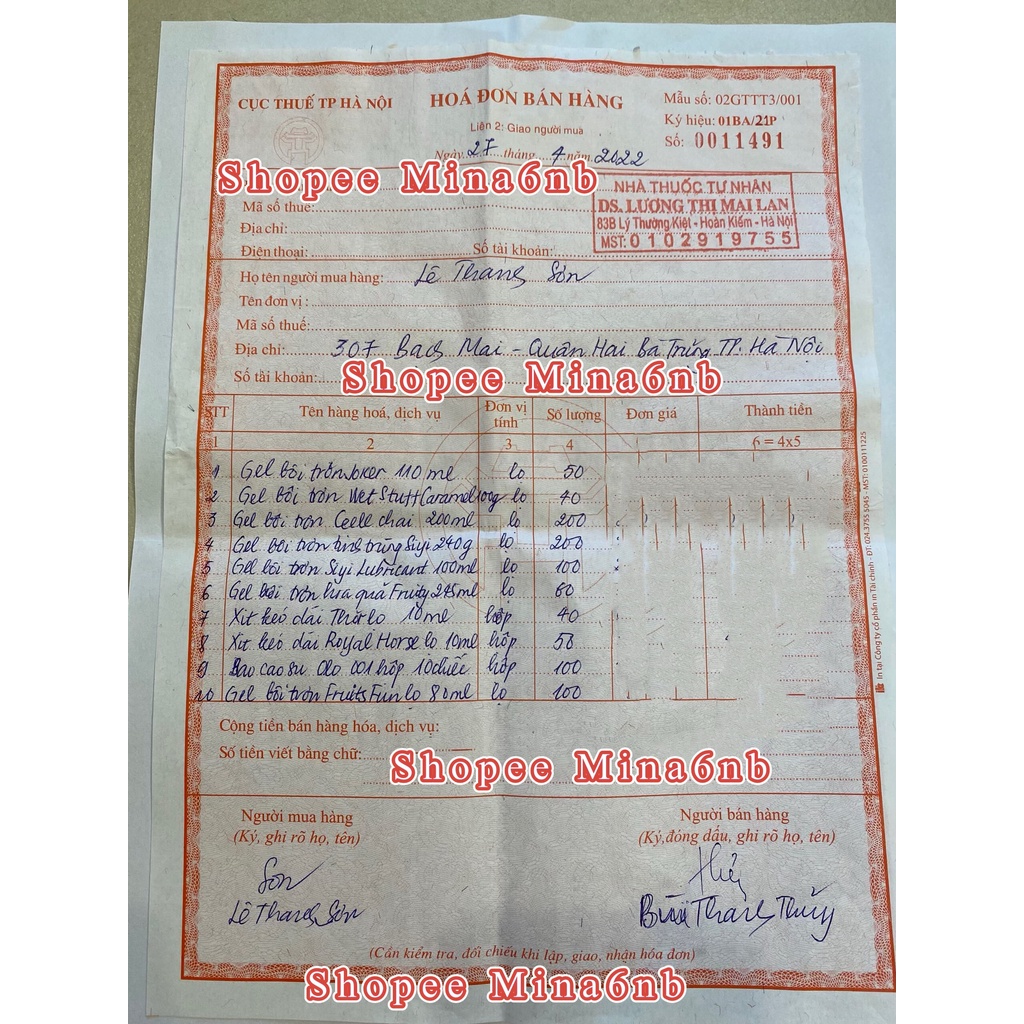 CỤC THUẾ TP HÀ NỘI
HOÁ ĐƠN BÁN HÀNG
Liên 2: Giao người mua
Ngày 27 tháng 4 năm 2022
Mẫu số: 02GTTT3/001
Ký hiệu: 01BA/21P
Số: 0011491
Shopee Mina6nb
NHÀ THUỐC TƯ NHÂN
DS. LƯƠNG THỊ MAI LAN
83B Lý Thường Kiệt - Hoàn Kiếm - Hà Nội
MST: 0102919755
Mã số thuế:
Địa chỉ:
Điện thoại: Số tài khoản:
Họ tên người mua hàng: Lê Thanh Sơn
Tên đơn vị:
Mã số thuế:
Địa chỉ: 307 Bạch Mai - Quận Hai Bà Trưng TP. Hà Nội
Số tài khoản:
Shopee Mina6nb
STT Tên hàng hoá, dịch vụ Đơn vị tính Số lượng Đơn giá Thành tiền
1 2 3 4 6 = 4x5
1 Gel bôi trơn Joker 110ml lọ 50
2 Gel bôi trơn Wet Stuff Caramel 100g lọ 40
3 Gel bôi trơn chai 200ml lọ 200
4 Gel bôi trơn tinh trùng Siyi 240g lọ 200
5 Gel bôi trơn Siyi Lubricant 100ml lọ 100
6 Gel bôi trơn hoa quả Fruity 245ml lọ 60
7 Xịt kéo dài lọ 10ml hộp 40
8 Xịt kéo dài Royal Horse lọ 10ml hộp 50
9 Bao cao su Olo 001 hộp 10 chiếc hộp 100
10 Gel bôi trơn Fruits Fun lọ 80ml lọ 100
Cộng tiền bán hàng hóa, dịch vụ:
Số tiền viết bằng chữ:
Shopee Mina6nb
Người mua hàng
(Ký, ghi rõ họ, tên)
Sơn
Lê Thanh Sơn
Người bán hàng
(Ký, đóng dấu, ghi rõ họ, tên)
Thủy
Bùi Thanh Thủy
(Cần kiểm tra, đối chiếu khi lập, giao, nhận hóa đơn)
Shopee Mina6nb
In tại Công ty cổ phần in Tài chính - ĐT: 024.3755 5045 - MST: 0100111225